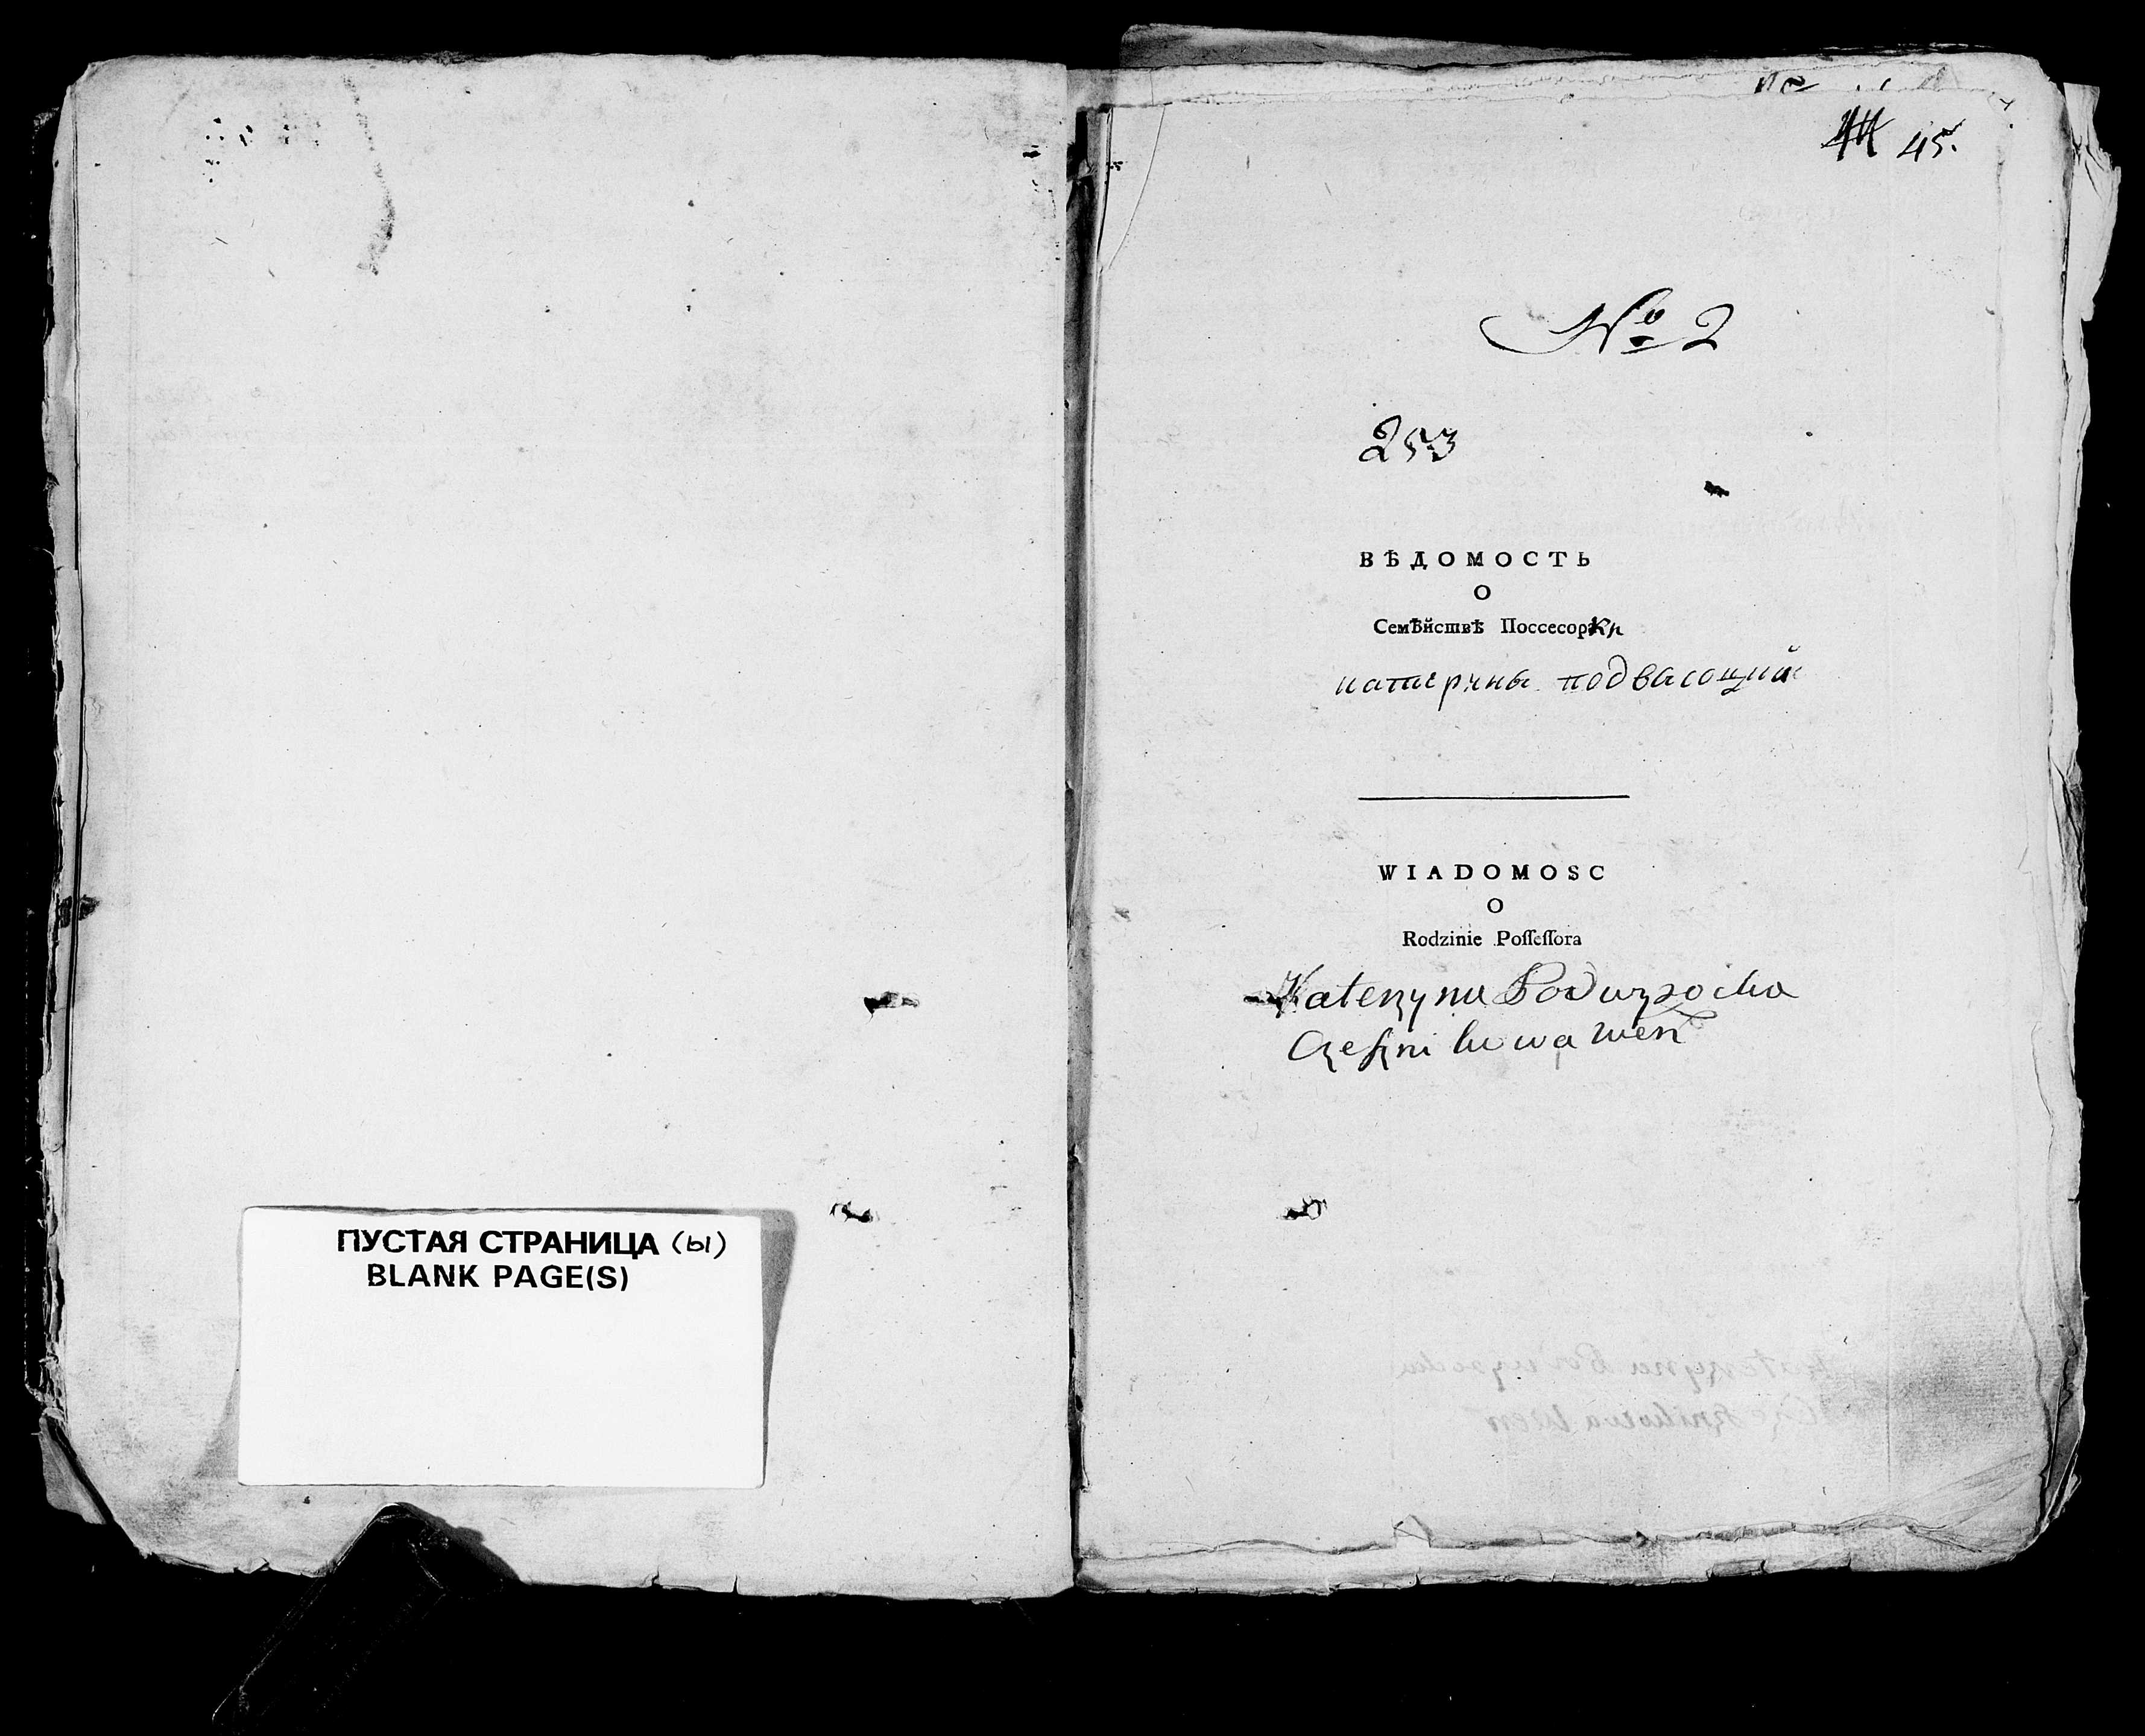 ПУСТАЯ СТРАНИЦА (ы)
BLANK PAGE(S)
44 45.
No 2
253
ВѢДОМОСТЬ
О
Семѣйствѣ Поссесорки
катерины подвасоцкой
WIADOMOSC
O
Rodzinie Poſſeſſora
Katerzyna Podwysocka
Czesznikowa